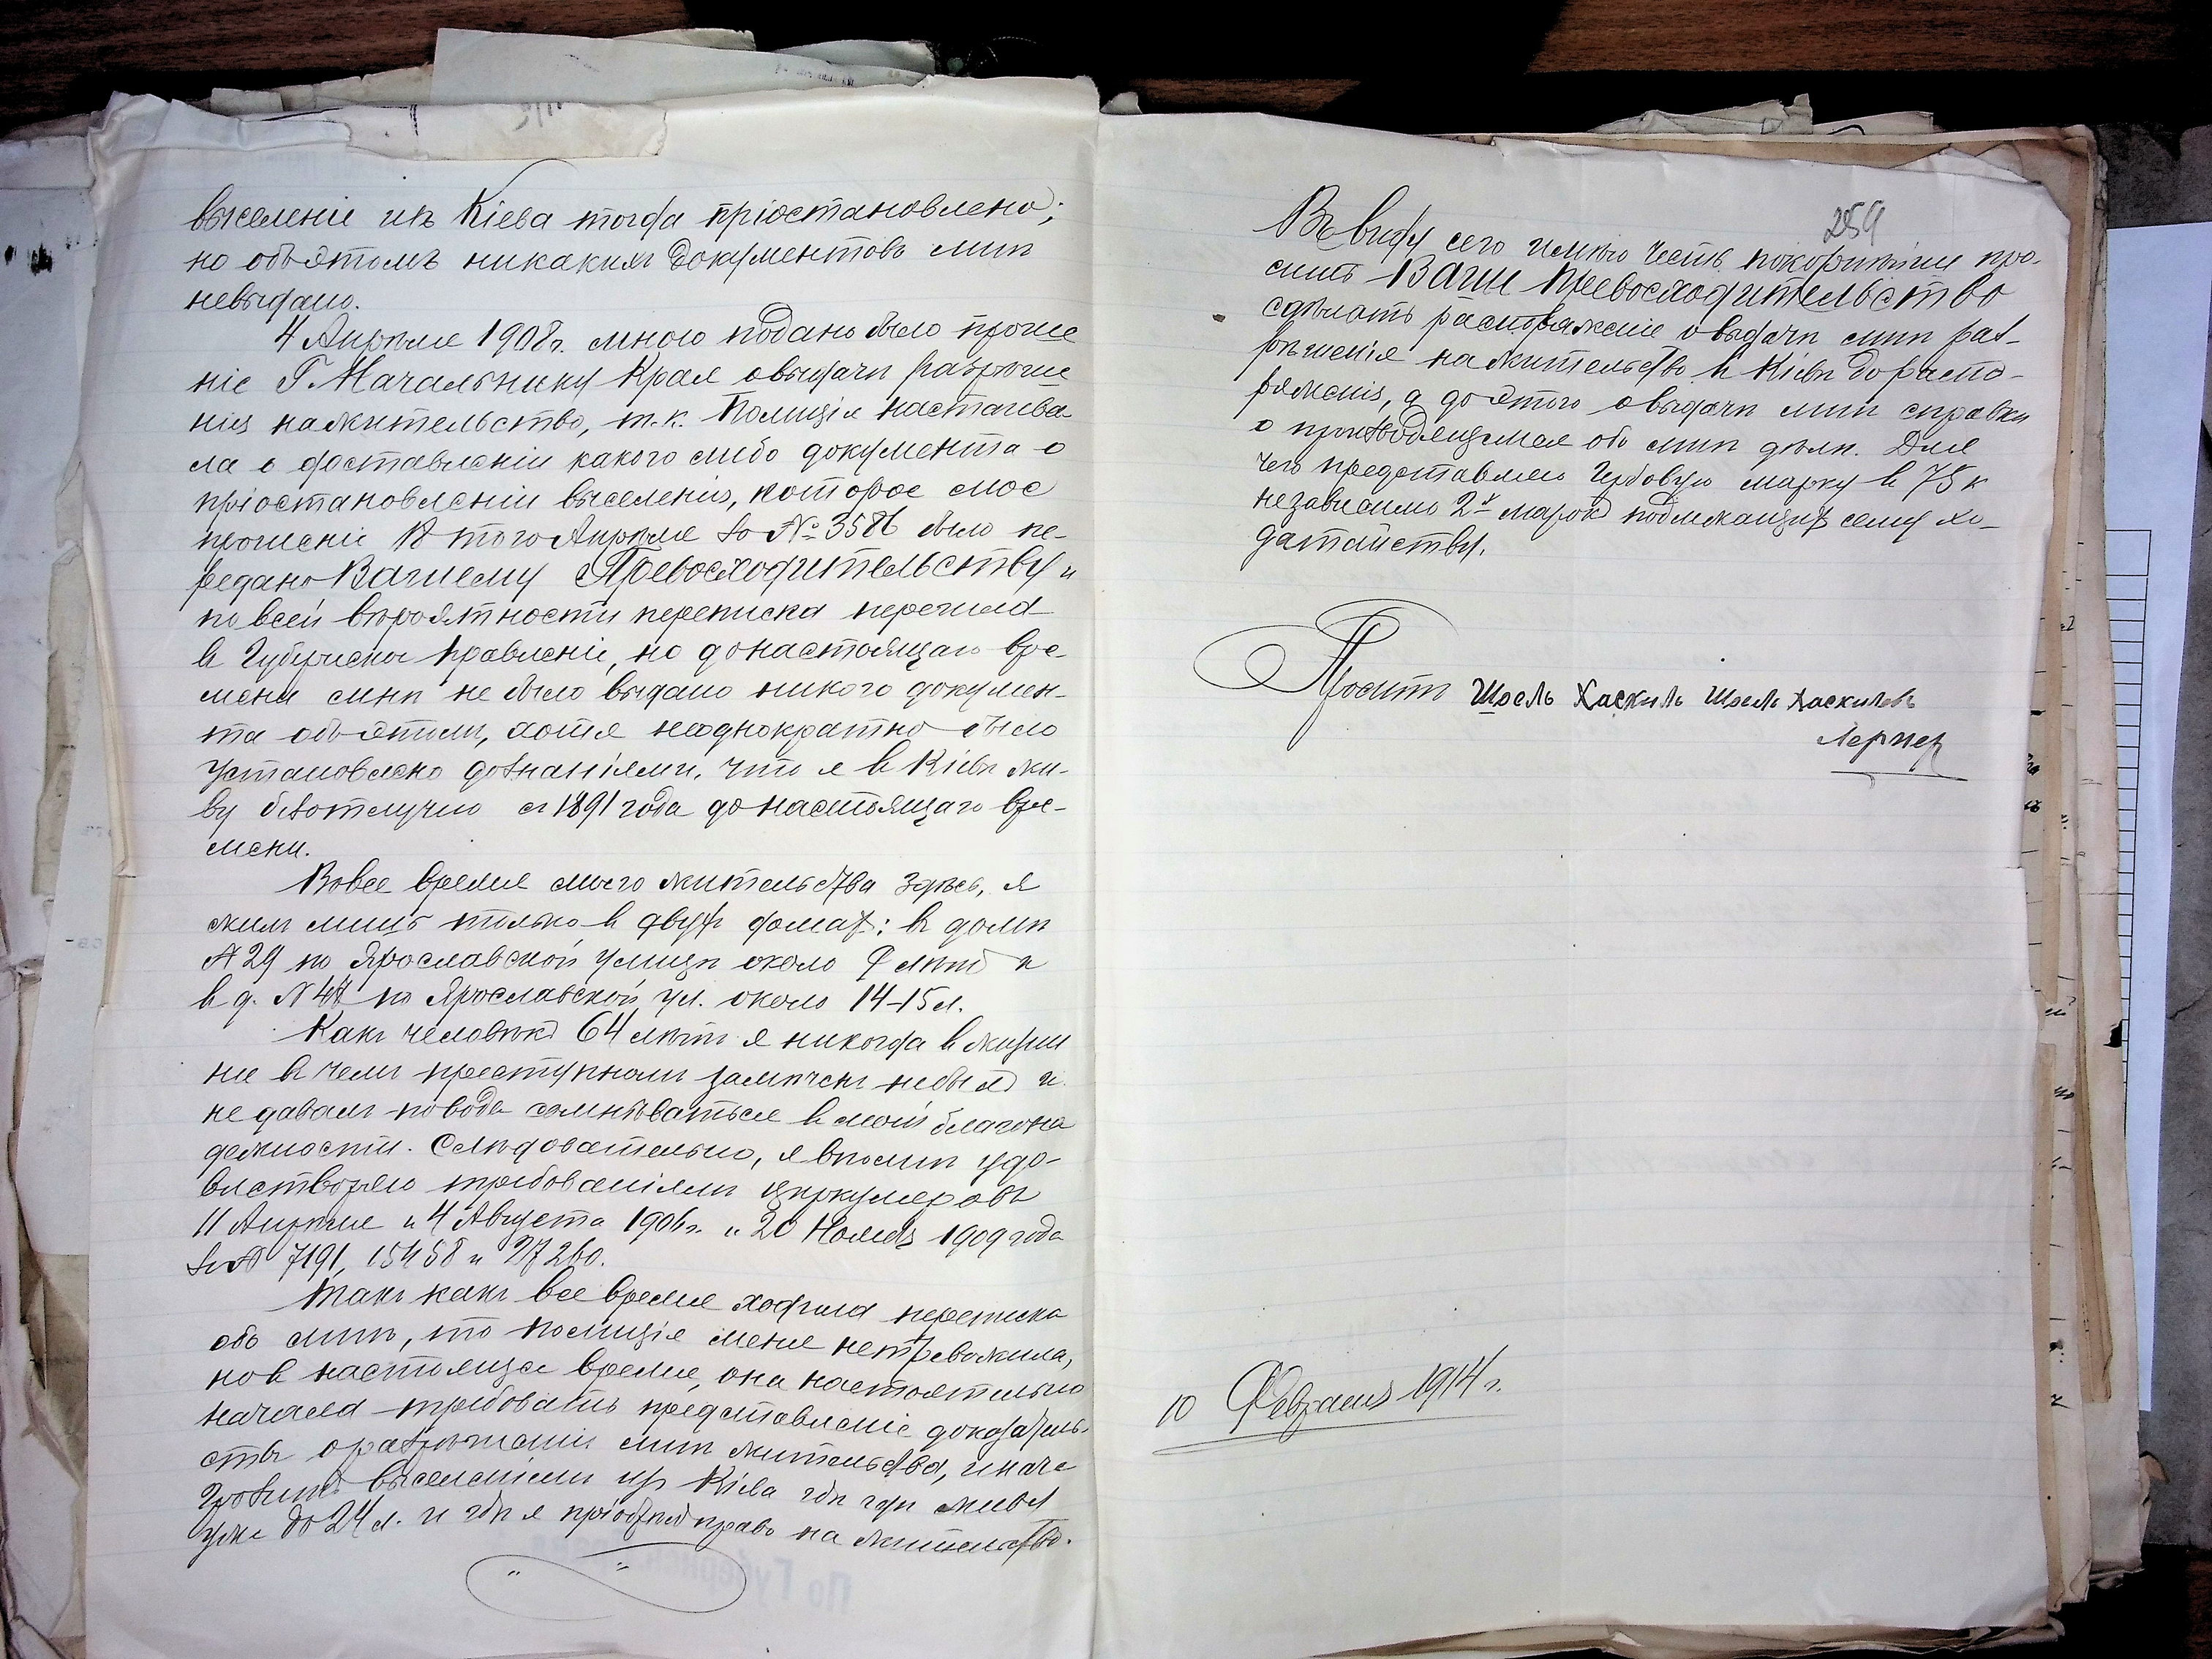 выселеніе изъ Кіева тогда пріостановлено;
но объ этомъ никакихъ документовъ мнѣ
невыдано.
4 Апрѣля 1908 г. мною подано было проше
ніе Г. Начальнику Края о выдачи разрѣше
нія на жительство, т. к. Полиція настаива-
ла о доставленіи какого либо документа о
пріостановленіи выселенія, которое мое
прошеніе 12 того Апрѣля за № 3586 было пе-
редано Вашему Превосходительству и
по всей вѣроятности переписка перешла
въ Губернское Правленіе, но до настоящаго вре-
мени мнѣ не было выдано никого докумен-
та объ этомъ, хотя неоднократно было
установлено дознаніями, что я въ Кіевѣ жи-
ву безотлучно съ 1891 года до настоящаго вре-
мени.
Во все время моего жительства здѣсь, я
жилъ лишь только въ двухъ домах: въ домѣ
№ 29 по Ярославской улицѣ около 9 лѣтъ и
въ д. № 47 по Ярославской ул. около 14-15 л.
Какъ человѣкъ 64 лѣтъ я никогда въ жизни
не въ чемъ преступномъ замѣченъ не былъ и
не давалъ повода сомнѣваться въ моей благона
дежности. Слѣдовательно, я вполнѣ удо-
влетворяю требованіямъ циркуляровъ
11 Апрѣля и 4 Августа 1906 г. и 20 Ноября 1909 года
за № 7191, 15458 и 27260.
Такъ какъ все время ходила переписка
обо мнѣ, то Полиція меня не тревожила,
но въ настоящее время, она настоятельно
начала требовать представленіе доказатель-
ствъ о разрѣшеніи мнѣ жительства, иначе
грозитъ выселеніемъ изъ Кіева гдѣ я живу
уже до 24 л. и гдѣ я пріобрѣлъ право на жительство.
259
Въ виду сего имѣю честь покорнѣйше про-
сить Ваше Превосходительство
сдѣлать распоряженіе о выдачи мнѣ раз-
рѣшенія на жительство въ Кіевѣ до распо-
ряженія, а до этого о выдачи мнѣ справки
о производящемся обо мнѣ дѣлѣ. Для
чего представляю Гербовую марку въ 75 к
независимо 2х марокъ подлежащихъ сему хо-
датайству.
Проситъ Шоелъ Хаскилъ Шоелъ Хаскилевъ
Лернеръ
10 Февраля 1914 г.